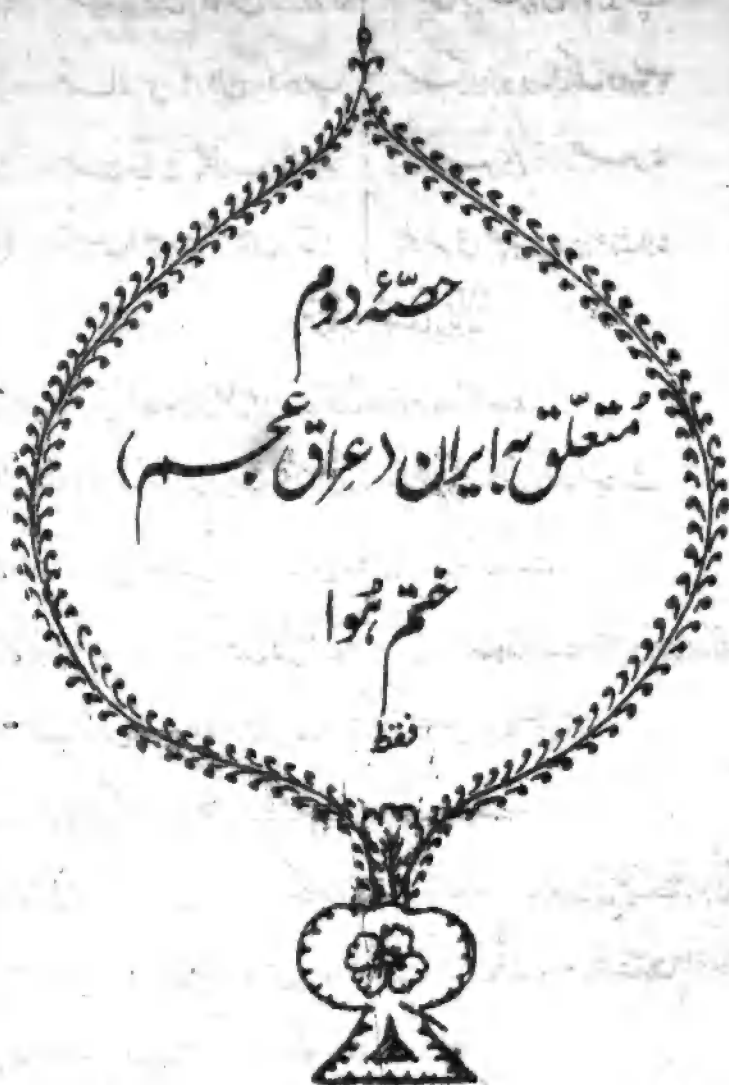 حصّۂ دوم
مُتعلّق بہ ایران (عِراقِ عجم)
ختم ہُوا
فقط